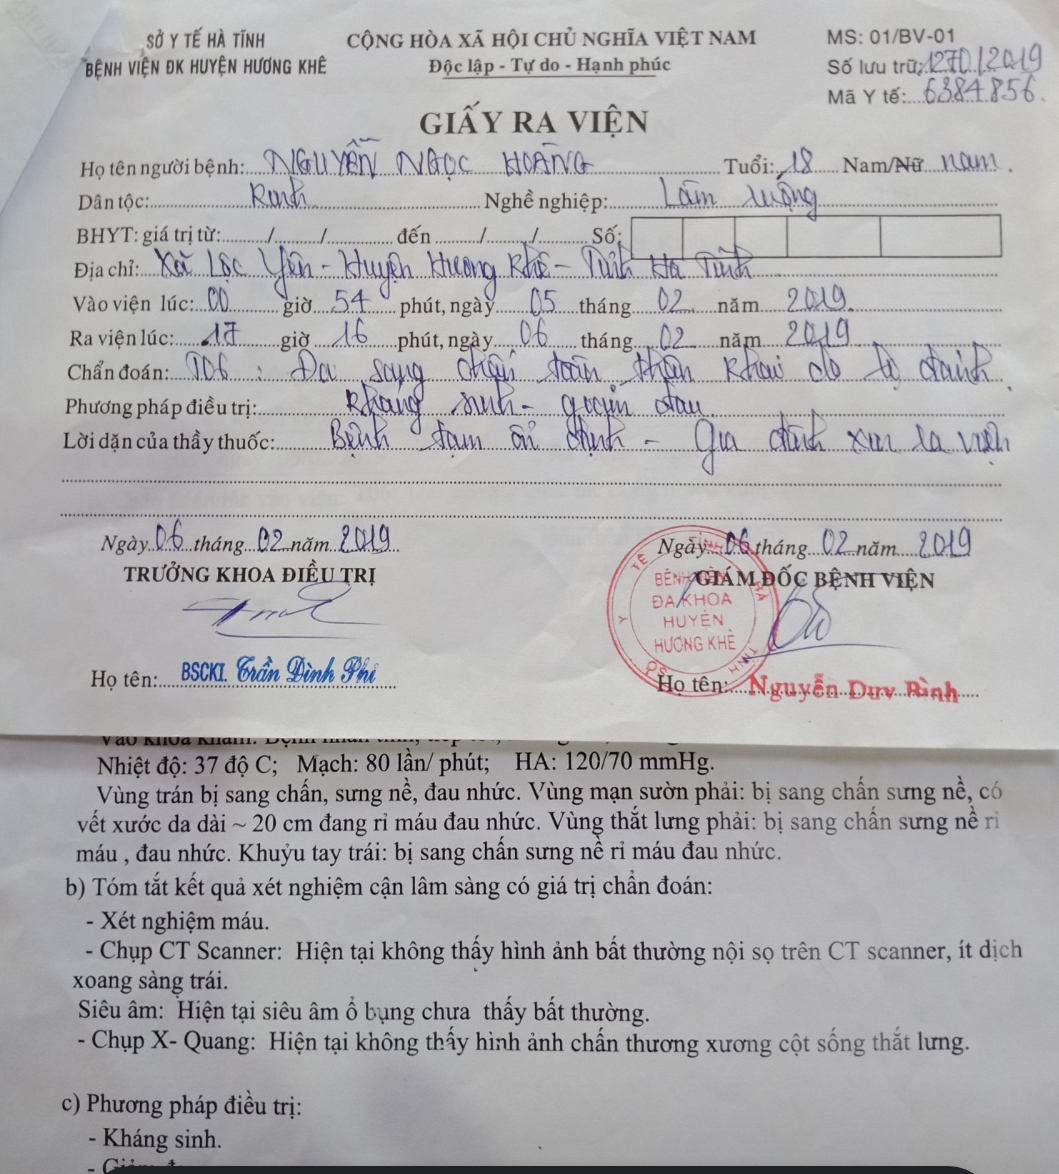 SỞ Y TẾ HÀ TĨNH
BỆNH VIỆN ĐK HUYỆN HƯƠNG KHÊ
CỘNG HÒA XÃ HỘI CHỦ NGHĨA VIỆT NAM
Độc lập - Tự do - Hạnh phúc
MS: 01/BV-01
Số lưu trữ: 1270/2019
Mã Y tế: 6384856.
GIẤY RA VIỆN
Họ tên người bệnh: NGUYỄN NGỌC HOÀNG Tuổi: 18 Nam/Nữ nam.
Dân tộc: Kinh Nghề nghiệp: Làm ruộng
BHYT: giá trị từ:......../......../............ đến ......../......../............ Số:
Địa chỉ: Xã Lộc Yên - Huyện Hương Khê - Tỉnh Hà Tĩnh
Vào viện lúc: 00 giờ 54 phút, ngày 05 tháng 02 năm 2019.
Ra viện lúc: 17 giờ 16 phút, ngày 06 tháng 02 năm 2019
Chẩn đoán: T06: Đa sang chấn toàn thân khai do bị đánh.
Phương pháp điều trị: Kháng sinh - giảm đau
Lời dặn của thầy thuốc: Bệnh tạm ổn định - Gia đình xin ra viện
Ngày 06 tháng 02 năm 2019
TRƯỞNG KHOA ĐIỀU TRỊ
Họ tên: BSCKI. Trần Đình Phi
Ngày 06 tháng 02 năm 2019
GIÁM ĐỐC BỆNH VIỆN
SỞ Y TẾ TỈNH HÀ TĨNH
BỆNH VIỆN
ĐA KHOA
HUYỆN
HƯƠNG KHÊ
Họ tên: Nguyễn Duy Bình
Vào khoa khám: Bệnh nhân tỉnh, tiếp
Nhiệt độ: 37 độ C; Mạch: 80 lần/ phút; HA: 120/70 mmHg.
Vùng trán bị sang chấn, sưng nề, đau nhức. Vùng mạn sườn phải: bị sang chấn sưng nề, có
vết xước da dài ~ 20 cm đang rỉ máu đau nhức. Vùng thắt lưng phải: bị sang chấn sưng nề rỉ
máu , đau nhức. Khuỷu tay trái: bị sang chấn sưng nề rỉ máu đau nhức.
b) Tóm tắt kết quả xét nghiệm cận lâm sàng có giá trị chẩn đoán:
- Xét nghiệm máu.
- Chụp CT Scanner: Hiện tại không thấy hình ảnh bất thường nội sọ trên CT scanner, ít dịch
xoang sàng trái.
Siêu âm: Hiện tại siêu âm ổ bụng chưa thấy bất thường.
- Chụp X- Quang: Hiện tại không thấy hình ảnh chấn thương xương cột sống thắt lưng.
c) Phương pháp điều trị:
- Kháng sinh.